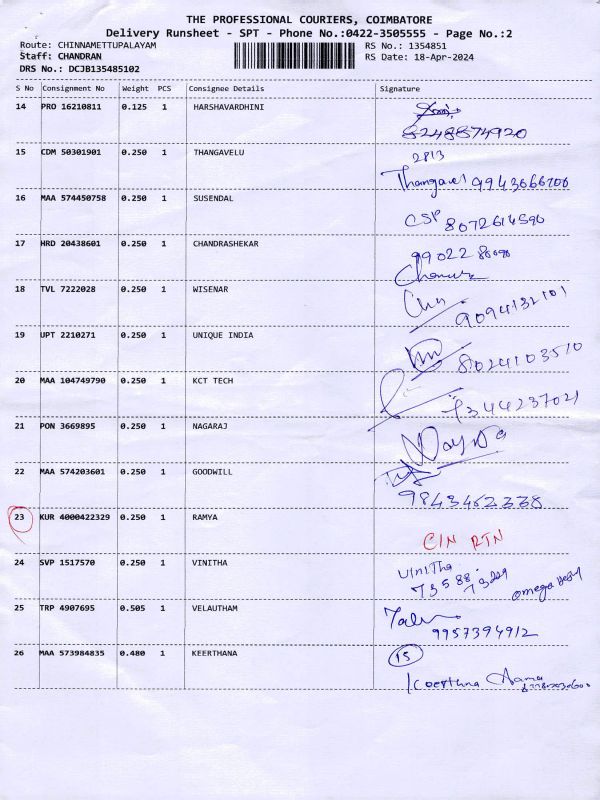 THE PROFESSIONAL COURIERS, COIMBATORE
Delivery Runsheet - SPT - Phone No.:0422-3505555 - Page No.:2
Route: CHINNAMETTUPALAYAM RS No.: 1354851
Staff: CHANDRAN RS Date: 18-Apr-2024
DRS No.: DCJB135485102
S No Consignment No Weight PCS Consignee Details Signature
14 PRO 16210811 0.125 1 HARSHAVARDHINI
8248874920
15 CDM 50301901 0.250 1 THANGAVELU 2813
Thangavel 9943666706
16 MAA 574450758 0.250 1 SUSENDAL
CSP 8072614590
17 HRD 20438601 0.250 1 CHANDRASHEKAR
18 TVL 7222028 0.250 1 WISENAR
9094132101
19 UPT 2210271 0.250 1 UNIQUE INDIA
8024103510
20 MAA 104749790 0.250 1 KCT TECH
21 PON 3669895 0.250 1 NAGARAJ
22 MAA 574203601 0.250 1 GOODWILL
9843462338
23 KUR 4000422329 0.250 1 RAMYA
CIN RTN
24 SVP 1517570 0.250 1 VINITHA
Vinitha
25 TRP 4907695 0.505 1 VELAUTHAM
9957394912
26 MAA 573984835 0.480 1 KEERTHANA 15
Keerthana